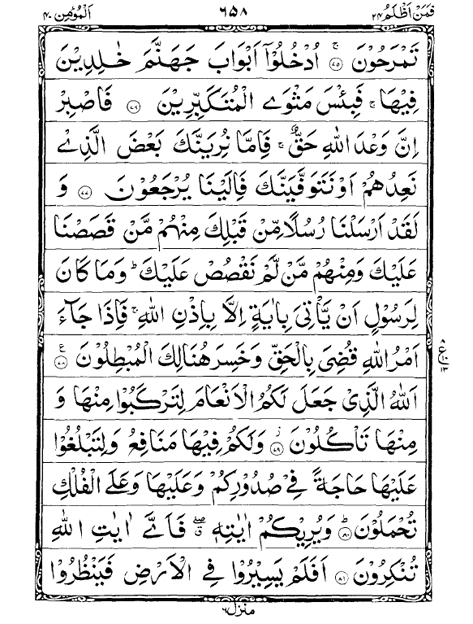 فَمَنْ اَظْلَمُ ٢٤ ٦٥٨ اَلْمُؤْمِن ٤٠
تَمْرَحُوْنَ ۚ‏﴿۷۵﴾ اُدْخُلُوْۤا اَبْوَابَ جَهَنَّمَ خٰلِدِيْنَ
فِيْهَا ۚ فَبِئْسَ مَثْوَى الْمُتَكَبِّرِيْنَ ﴿۷۶﴾ فَاصْبِرْ
اِنَّ وَعْدَ اللّٰهِ حَقٌّ ۚ فَاِمَّا نُرِيَنَّكَ بَعْضَ الَّذِىْ
نَعِدُهُمْ اَوْ نَتَوَفَّيَنَّكَ فَاِلَيْنَا يُرْجَعُوْنَ ﴿۷۷﴾ وَ
لَقَدْ اَرْسَلْنَا رُسُلًا مِّنْ قَبْلِكَ مِنْهُمْ مَّنْ قَصَصْنَا
عَلَيْكَ وَمِنْهُمْ مَّنْ لَّمْ نَقْصُصْ عَلَيْكَ ؕ وَمَا كَانَ
لِرَسُوْلٍ اَنْ يَّاْتِىَ بِاٰيَةٍ اِلَّا بِاِذْنِ اللّٰهِ ۚ فَاِذَا جَآءَ
اَمْرُ اللّٰهِ قُضِىَ بِالْحَقِّ وَخَسِرَ هُنَالِكَ الْمُبْطِلُوْنَ ﴿۷۸﴾
اَللّٰهُ الَّذِىْ جَعَلَ لَكُمُ الْاَنْعَامَ لِتَرْكَبُوْا مِنْهَا وَ
مِنْهَا تَاْكُلُوْنَ ﴿۷۹﴾ وَلَكُمْ فِيْهَا مَنَافِعُ وَلِتَبْلُغُوْا
عَلَيْهَا حَاجَةً فِىْ صُدُوْرِكُمْ وَعَلَيْهَا وَعَلَى الْفُلْكِ
تُحْمَلُوْنَ ؕ‏﴿۸۰﴾ وَيُرِيْكُمْ اٰيٰتِهٖ ۖ فَاَىَّ اٰيٰتِ اللّٰهِ
تُنْكِرُوْنَ ﴿۸۱﴾ اَفَلَمْ يَسِيْرُوْا فِى الْاَرْضِ فَيَنْظُرُوْا
منزل ٦